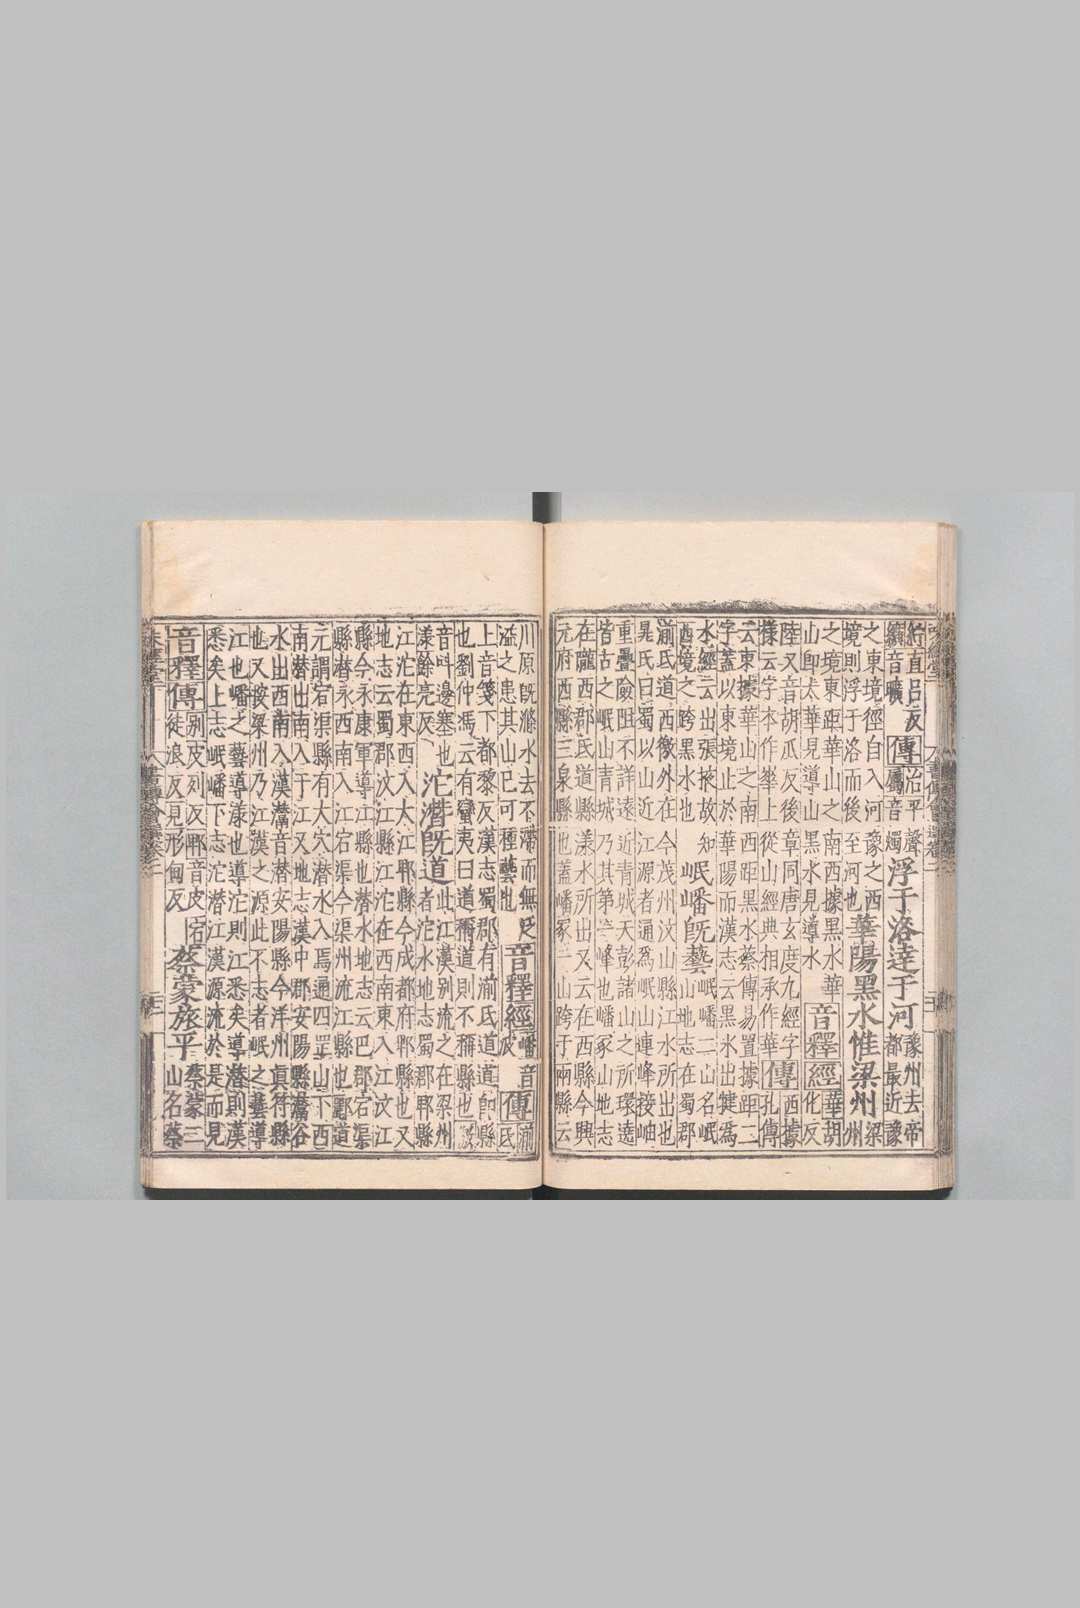 紵直呂反
纊音曠
傳
治平聲
屬音燭
浮于洛達于河
豫州去帝
都最近豫
之東境徑自入河豫之西
境則浮于洛而後至河也
華陽黑水惟梁州
梁
州
之境東距華山之南西據黑水
山即太華見導山黑水見導水
音釋
經
華胡
化反
陸又音胡瓜反後章同唐玄度九經字
樣云字本作崋上從山經典相承作華
傳
西據
孔傳
云東據華山之南西距黑水蔡傳易置據距二
字蓋以東境止於華陽而漢志云黑水出犍為
水經云出張掖故知
西境之跨黑水也
岷嶓既藝
岷嶓二山名岷
山地志在蜀郡
湔氐道西徼外在今茂州汶山縣江水所出也
晁氏曰蜀以山近江源者通為岷山連峰接岫
重疊險阻不詳遠近青城天彭諸山之所環遶
皆古之岷山青城乃其第一峰也嶓冢山地志
在隴西郡氐道縣漾水所出又云在西縣今興
元府西縣三泉縣也蓋嶓冢一山跨于兩縣云
川原既滌水去不滯而無泛
溢之患其山已可種藝也
音釋
經
嶓音
波
傳
湔
氐
上音箋下都黎反漢志蜀郡有湔氐道道即縣
也劉仲馮云有蠻夷曰道稱道則不稱縣也徼
音叫邊塞也
漾餘亮反
沱潛既道
此江漢別流之在梁州
者沱水地志蜀郡郫縣
江沱在東西入大江郫縣今成都府郫縣也又
地志云蜀郡汶江縣江沱在西南東入江汶江
縣今永康軍導江縣也潛水地志云巴郡宕渠
縣潛水西南入江宕渠今渠州流江縣也酈道
元謂宕渠縣有大穴潛水入焉通罡山下西
南潛出南入于江又地志漢中郡安陽縣灊谷
水出西南入漢灊音潛安陽縣今洋州真符縣
也又按梁州乃江漢之源此不志者岷之藝導
江也嶓之藝導漾也導沱則江悉矣導潛則漢
悉矣上志岷嶓下志沱潛江漢源流於是而見
音釋
傳
別皮列反郫音皮宕
徒浪反見形甸反
蔡蒙旅平
蔡蒙二
山名蔡